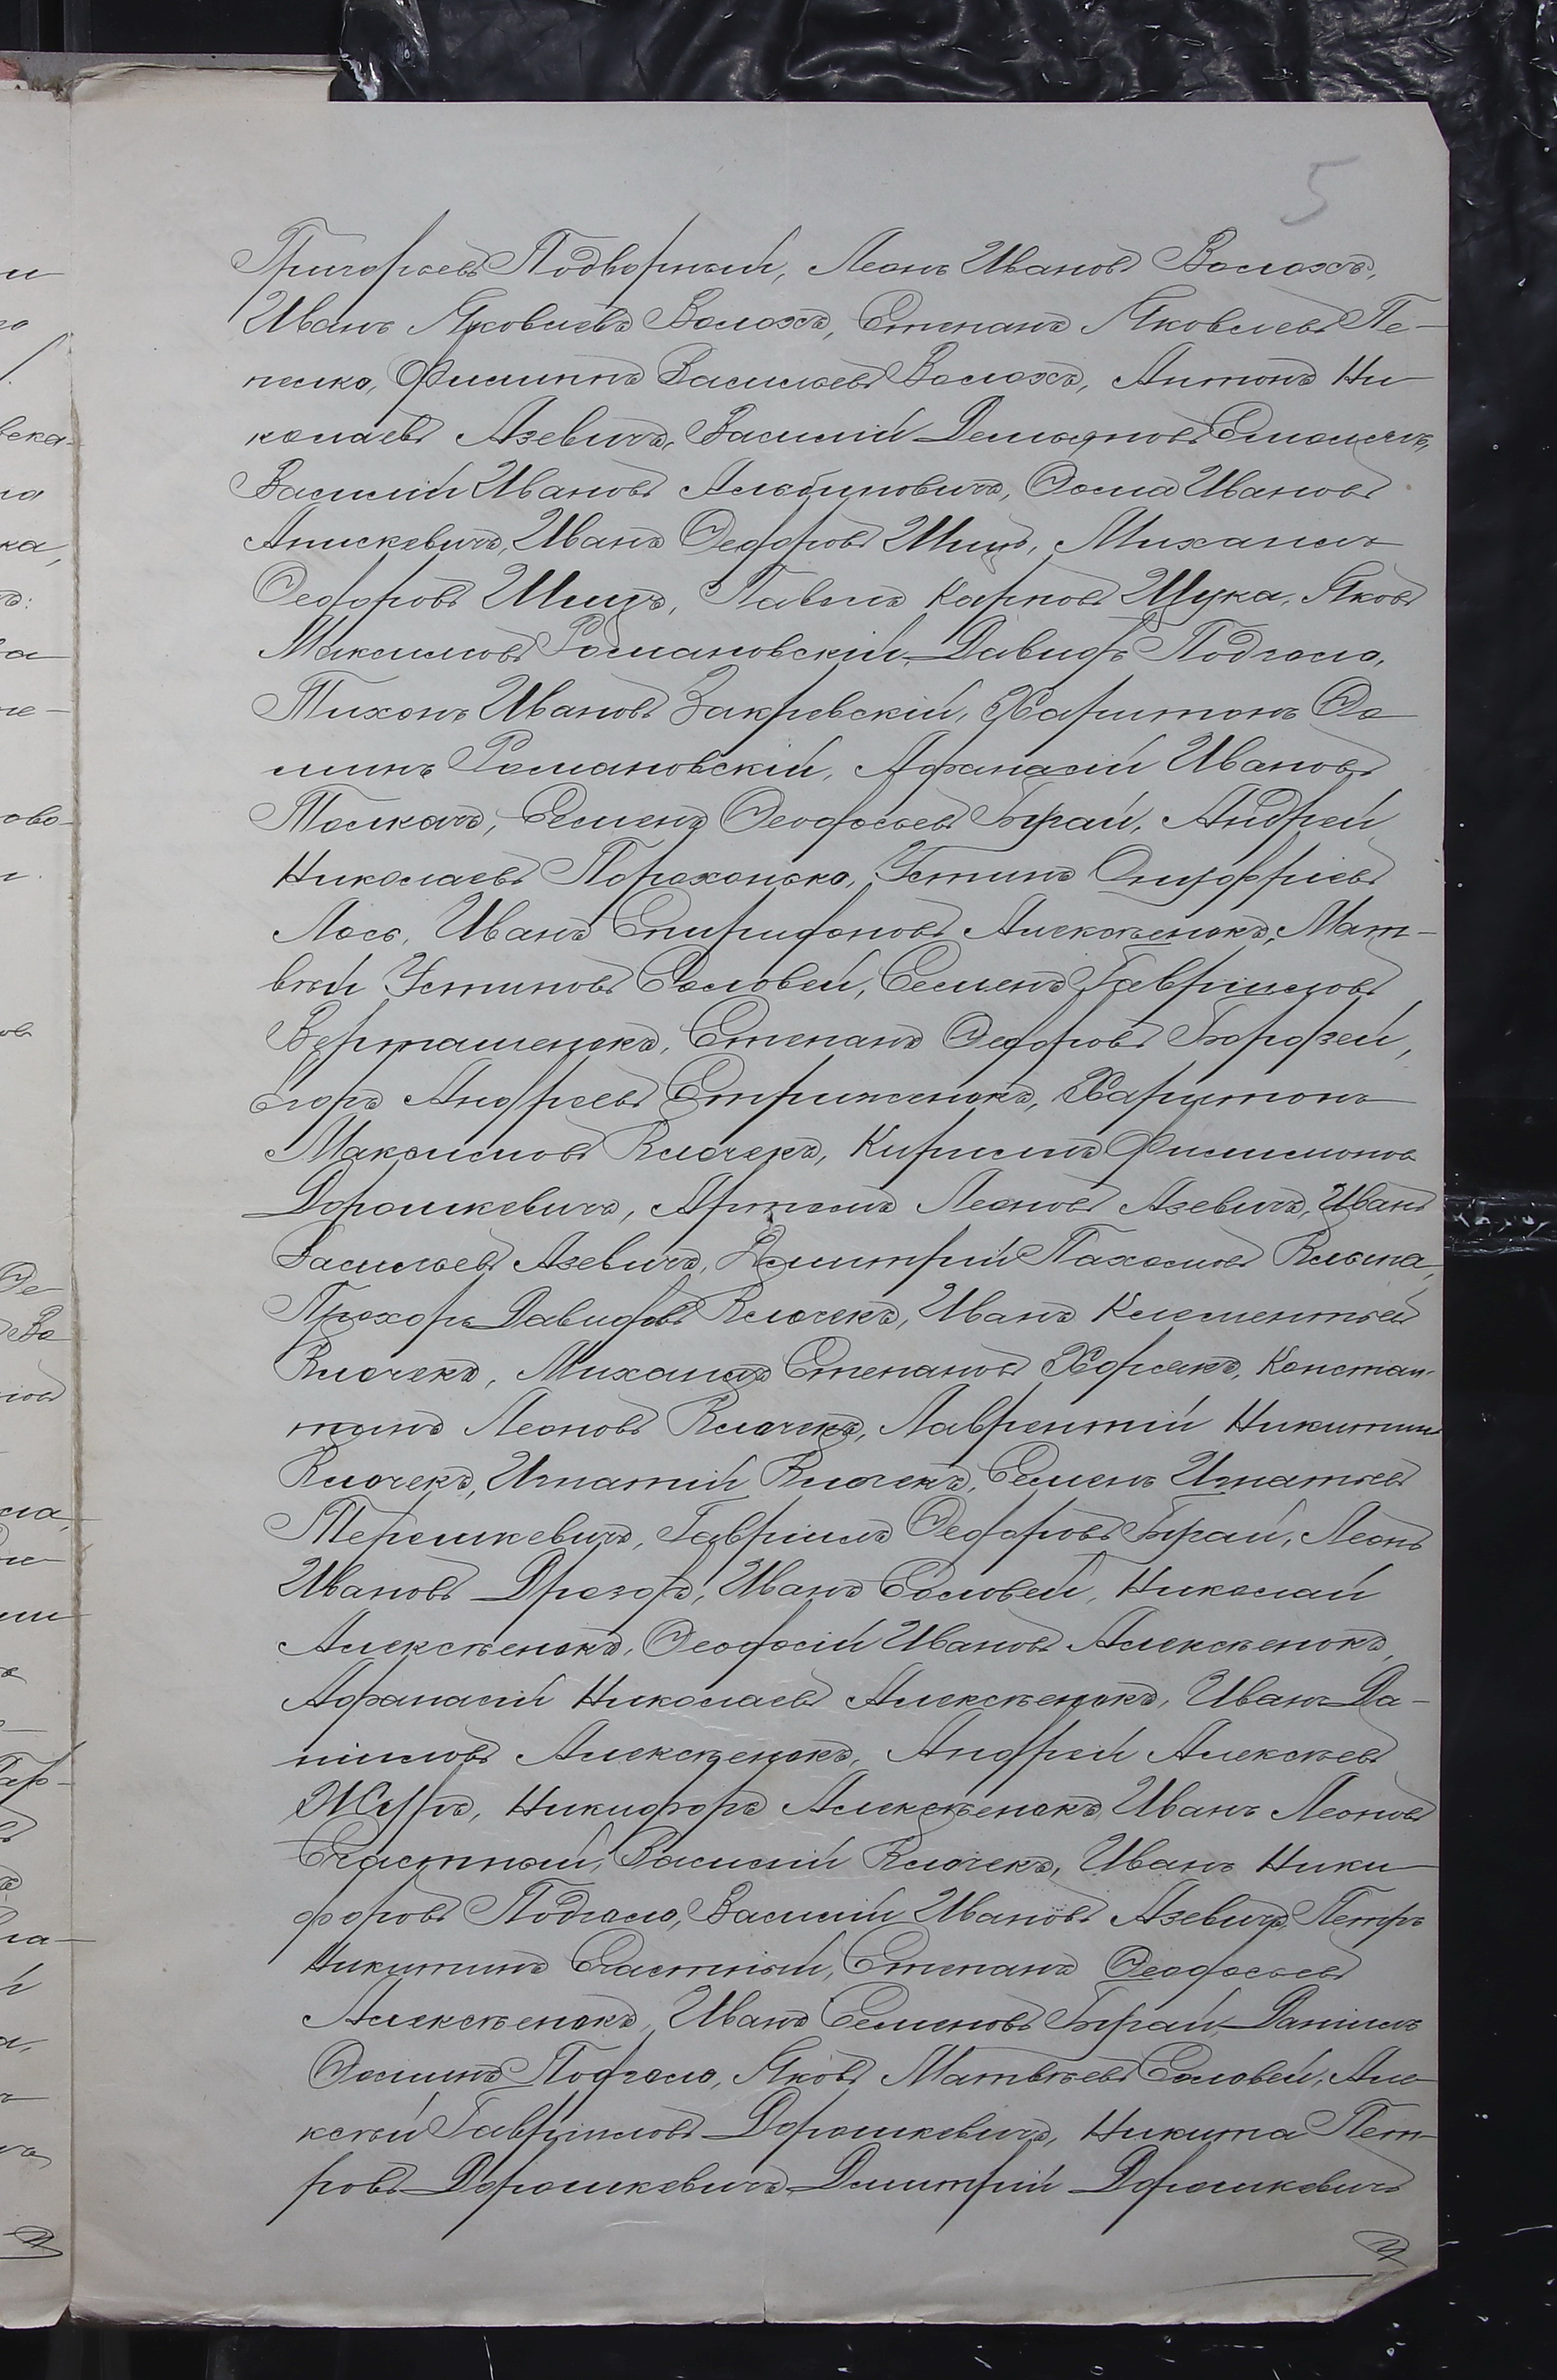 5
Григорьевъ Подворный, Леонъ Ивановъ Волохъ,
Иванъ Яковлевъ Волохъ, Степанъ Яковлевъ Пе-
пелко, Филиппъ Васильевъ Волохъ, Антонъ Ни-
колаевъ Азевичъ, Василій Демьяновъ
Василій Ивановъ Альбиновичъ, Ѳома Ивановъ
Анискевичъ, Иванъ Ѳедоровъ Шицъ, Михаилъ
Ѳедоровъ Шицъ, Павелъ Карповъ Щука, Яковъ
Максимовъ Романовскій, Давидъ Подголо,
Тихонъ Ивановъ Закревскій, Харитонъ Ѳо-
минъ Романовскій, Афанасій Ивановъ
Толкачъ, Семенъ Ѳеодосьевъ Бурай, Андрей
Николаевъ Порохонько, Устинъ Онуфріевъ
Лось, Иванъ Спиридоновъ Алексѣенокъ, Мат-
вѣй Устиновъ Соловей, Семенъ Гавріиловъ
Верташенокъ, Степанъ Ѳедоровъ Бородзей,
Егоръ Андреевъ Стриженокъ, Харитонъ
Максимовъ Клочекъ, Кирилъ Филимонов
Дорошкевичъ, Артемъ Леоновъ Азевичъ, Иванъ
Васильевъ Азевичъ, Димитрій Пахомовъ
Прохоръ Давидовъ Клочекъ, Иванъ Клементьев
Клочекъ, Михаилъ Степановъ Хорсекъ, Констан-
тинъ Леоновъ Клочекъ, Лаврентій Никитинъ
Клочекъ, Игнатій Клочекъ, Семенъ Игнатьевъ
Терешкевичъ, Гавріилъ Ѳедоровъ Бурай, Леонъ
Ивановъ Дроздъ, Иванъ Соловей, Николай
Алексѣенокъ, Ѳеодосій Ивановъ Алексѣенокъ,
Афанасій Николаевъ Алексѣенокъ, Иванъ Да-
ниловъ Алексѣенокъ, Андрей Алексѣевъ
Журъ, Никифоръ Алексѣенокъ, Иванъ Леоновъ
Счастный, Василій Клочекъ, Иванъ Ники-
форовъ Подголо, Василій Ивановъ Азевичъ, Петръ
Никитинъ Счастный, Степанъ Ѳеодосьевъ
Алексѣенокъ, Иванъ Семеновъ Бурай, Даніилъ
Ѳоминъ Подголо, Яковъ Матвѣевъ Соловей, Але-
ксѣй Гавріиловъ Дорошкевичъ, Никита Пет-
ровъ Дорошкевичъ, Димитрій Дорошкевичъ